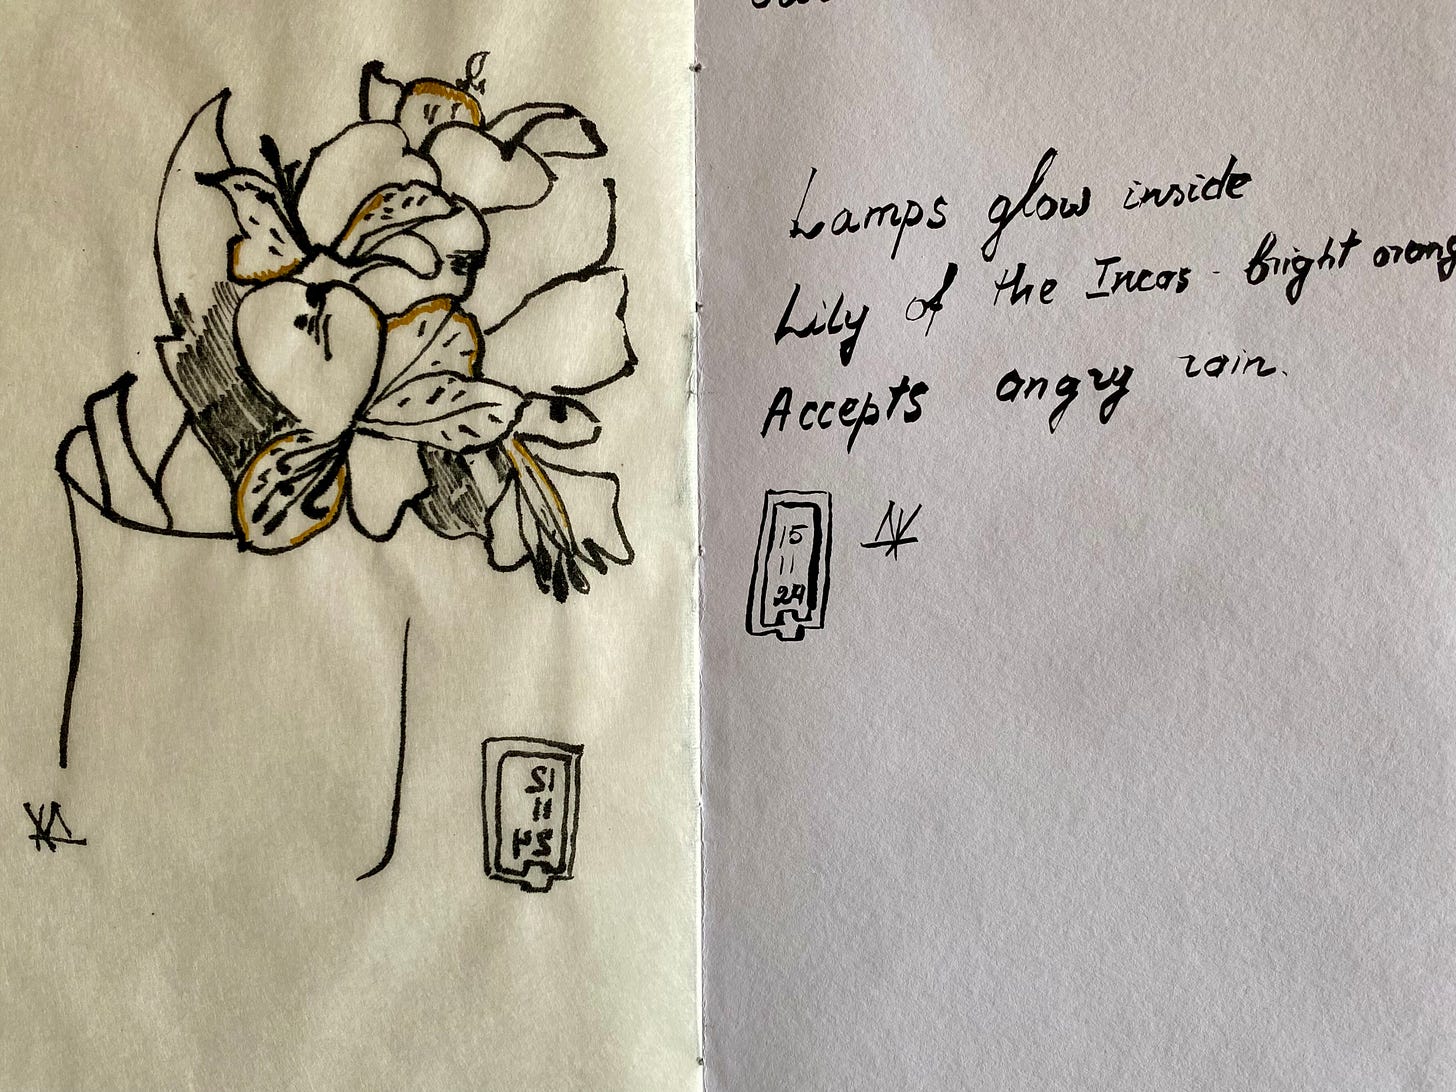 11
24
Lamps glow inside
Lily of the Incas - bright orang
Accepts angry rain.
15
11
24